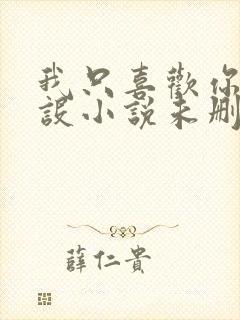 我只喜歡你
設小說未刪
薛仁貴